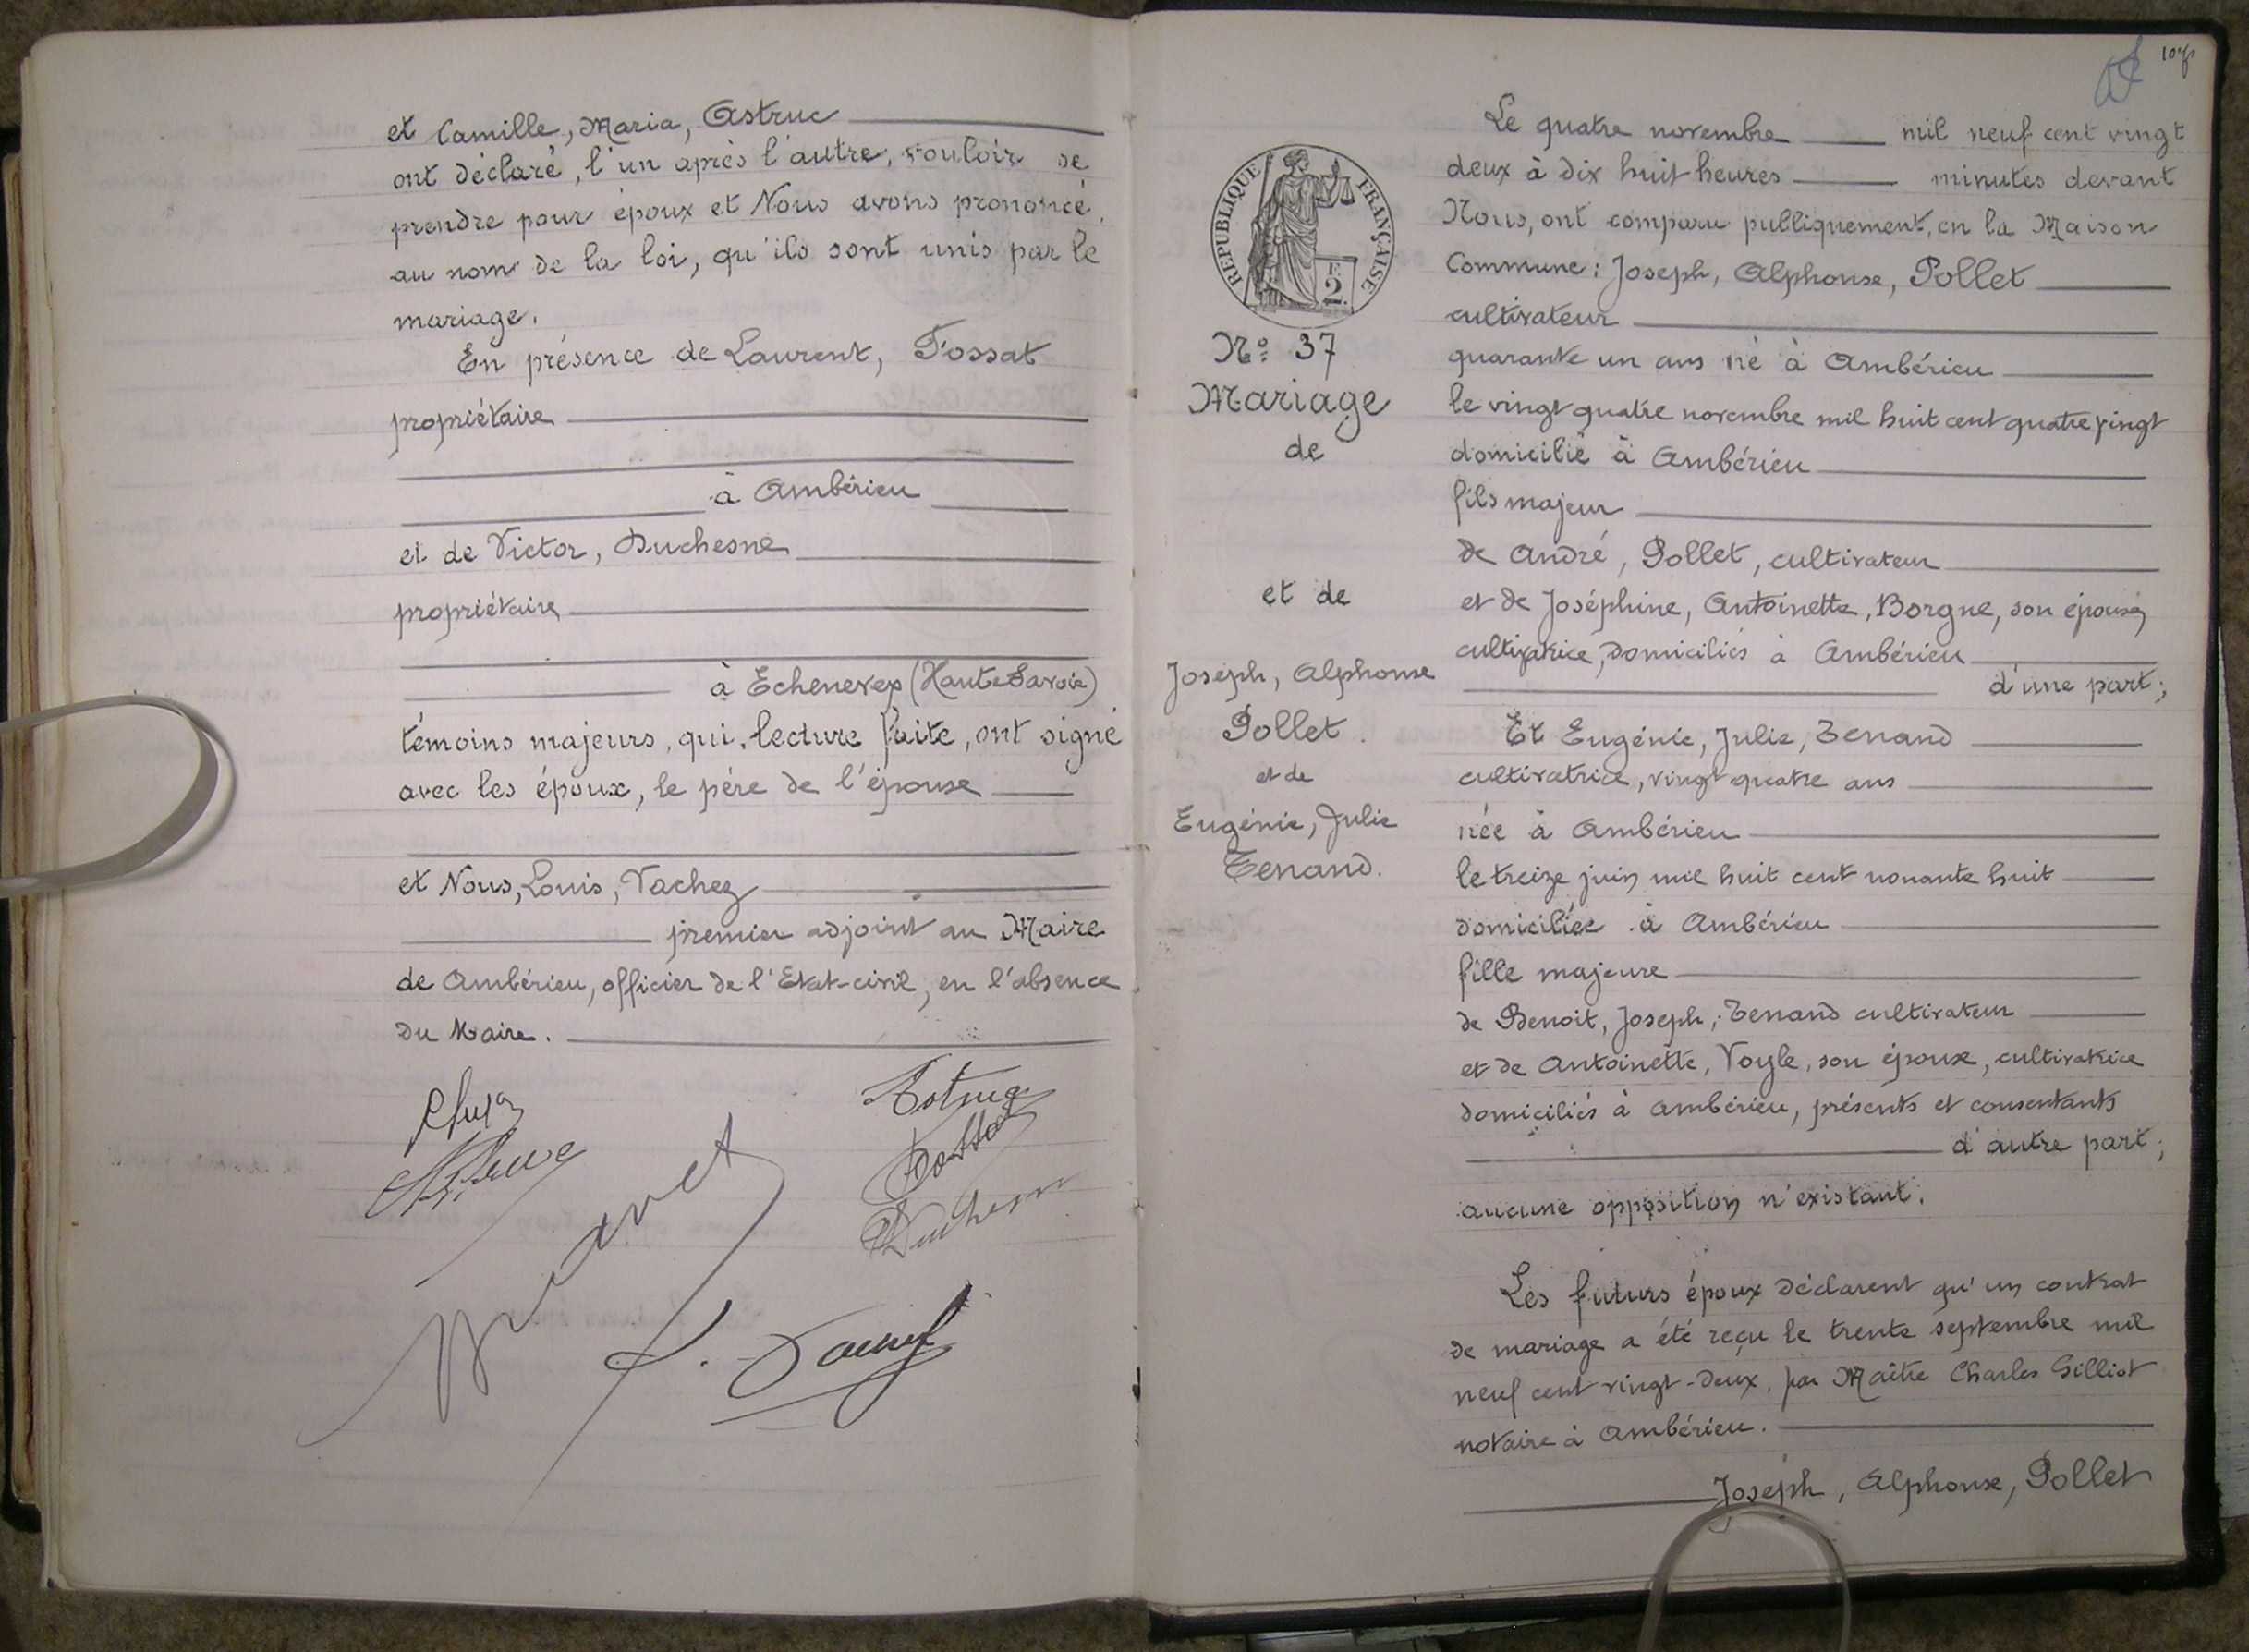 et Camille, Maria, Astruc
ont déclaré, l'un après l'autre, vouloir se
prendre pour époux et Nous avons prononcé,
au nom de la loi, qu'ils sont unis par le
mariage.
En présence de Laurent, Fossat
propriétaire
à Ambérieu
et de Victor, Duchesne
propriétaire
à Echenevex (Haute Savoie)
témoins majeurs, qui, lecture faite, ont signé
avec les époux, le père de l'épouse
et Nous, Louis, Vachez
premier adjoint au Maire
de Ambérieu, officier de l'Etat-civil, en l'absence
du Maire.
REPUBLIQUE FRANÇAISE
2
No: 37
Mariage
de
et de
Joseph, Alphonse
Pollet.
et de
Eugénie, Julie
Tenand.
Le quatre novembre mil neuf cent vingt
deux à dix huit heures minutes devant
Nous, ont comparu publiquement, en la Maison
Commune: Joseph, Alphonse, Pollet
cultivateur
quarante un ans né à Ambérieu
le vingt quatre novembre mil huit cent quatre vingt
domicilié à Ambérieu
fils majeur
de André, Pollet, cultivateur
et de Joséphine, Antoinette, Borgne, son épouse,
cultivatrice, domiciliés à Ambérieu
d'une part;
Et Eugénie, Julie, Tenand
cultivatrice, vingt quatre ans
née à Ambérieu
le treize juin mil huit cent nonante huit
domiciliée à Ambérieu
fille majeure
de Benoit, Joseph, Tenand cultivateur
et de Antoinette, Voyle, son épouse, cultivatrice
domiciliés à Ambérieu, présents et consentants
d'autre part;
aucune opposition n'existant.
Les futurs époux déclarent qu'un contrat
de mariage a été reçu le trente septembre mil
neuf cent vingt-deux, par Maître Charles Gilliot
notaire à Ambérieu.
Joseph, Alphonse, Pollet